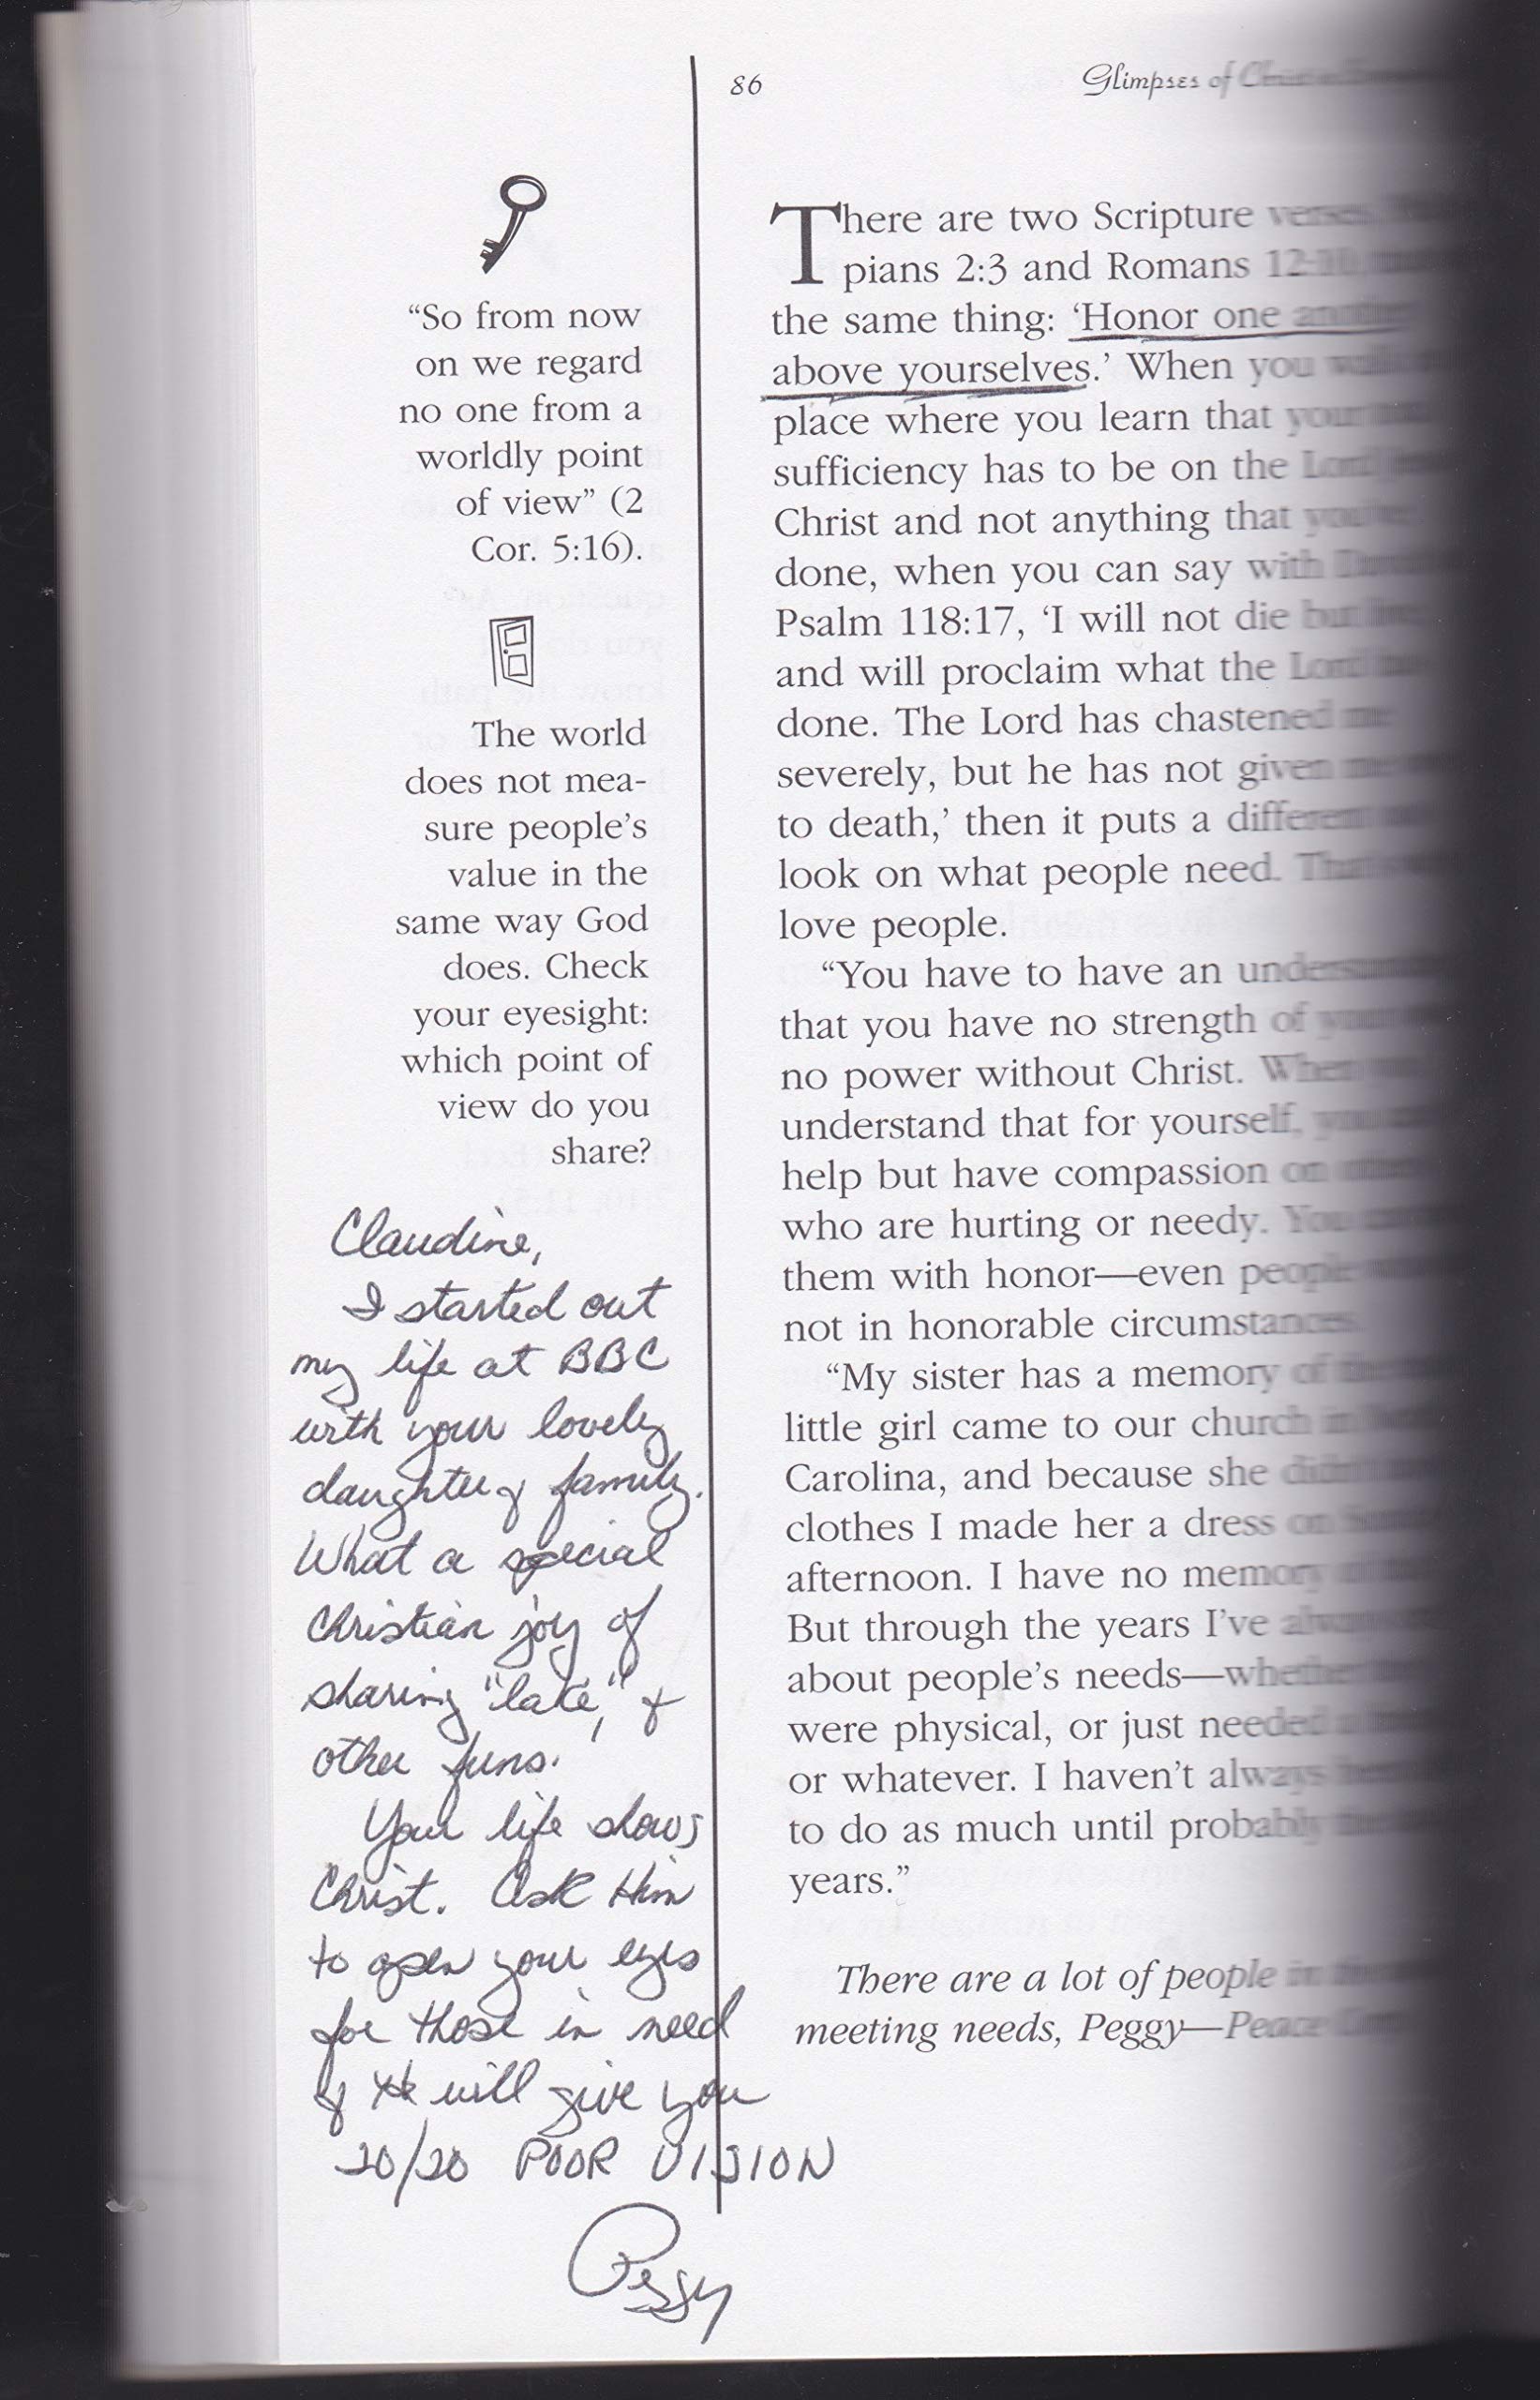 86
Glimpses of
"So from now
on we regard
no one from a
worldly point
of view" (2
Cor. 5:16).
The world
does not mea-
sure people's
value in the
same way God
does. Check
your eyesight:
which point of
view do you
share?
Claudine,
I started out
my life at BBC
with your lovely
daughter & family.
What a special
Christian joy of
sharing "lake," &
other funs.
Your life shows
Christ. Ask Him
to open your eyes
for those in need
& He will give you
20/20 POOR VISION
Peggy
There are two Scripture verses
pians 2:3 and Romans
the same thing: 'Honor one another
above yourselves.' When you
place where you learn that your
sufficiency has to be on the Lord
Christ and not anything that you've
done, when you can say with
Psalm 118:17, 'I will not die but live
and will proclaim what the Lord has
done. The Lord has chastened me
severely, but he has not given me
to death,' then it puts a different
look on what people need. That's
love people.
"You have to have an
that you have no strength of your
no power without Christ. When
understand that for yourself, you
help but have compassion on
who are hurting or needy. You
them with honor—even people
not in honorable circumstances.
"My sister has a memory of
little girl came to our church in
Carolina, and because she didn't
clothes I made her a dress on
afternoon. I have no memory
But through the years I've always
about people's needs—whether
were physical, or just needed a
or whatever. I haven't always
to do as much until probably
years."
There are a lot of people in
meeting needs, Peggy—Peace